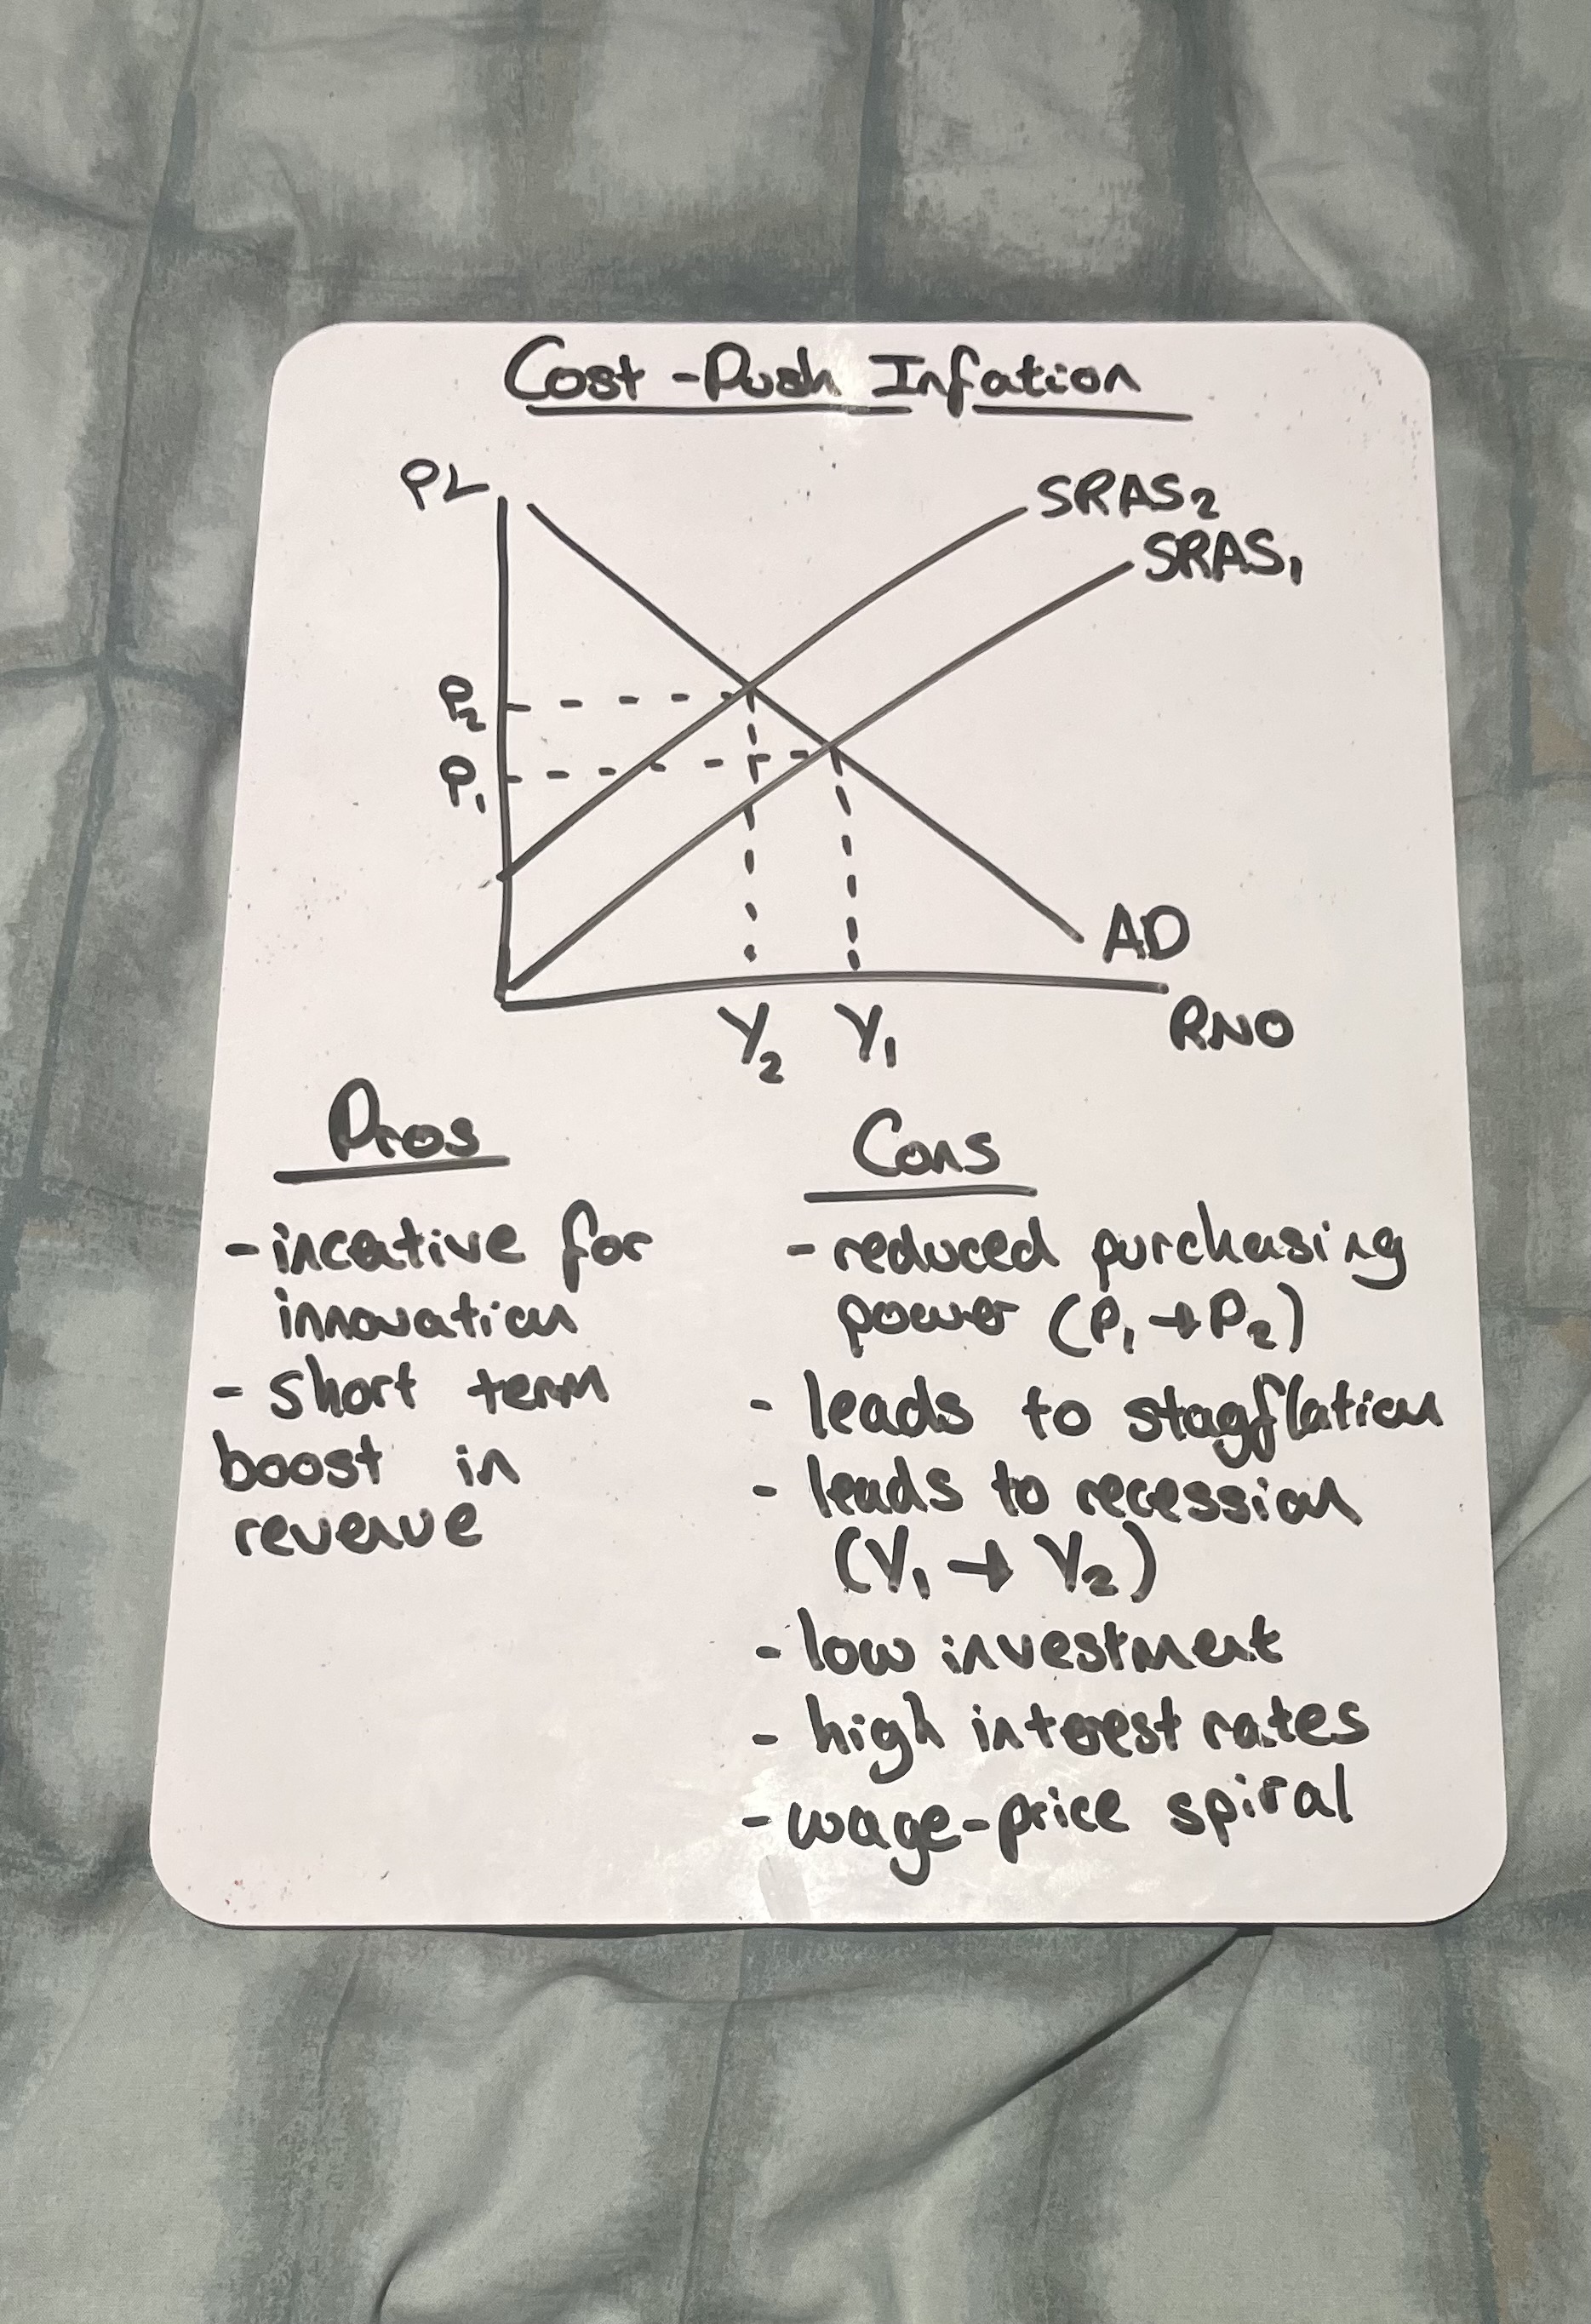 Cost-Push Infation
PL
SRAS₂
SRAS₁
P₂
P₁
AD
Y₂ Y₁
RNO
Pros
- incetive for
innovation
- short term
boost in
revenue
Cons
- reduced purchasing
power (P₁ → P₂)
- leads to stagflation
- leads to recession
(Y₁ → Y₂)
- low investment
- high interest rates
- wage-price spiral